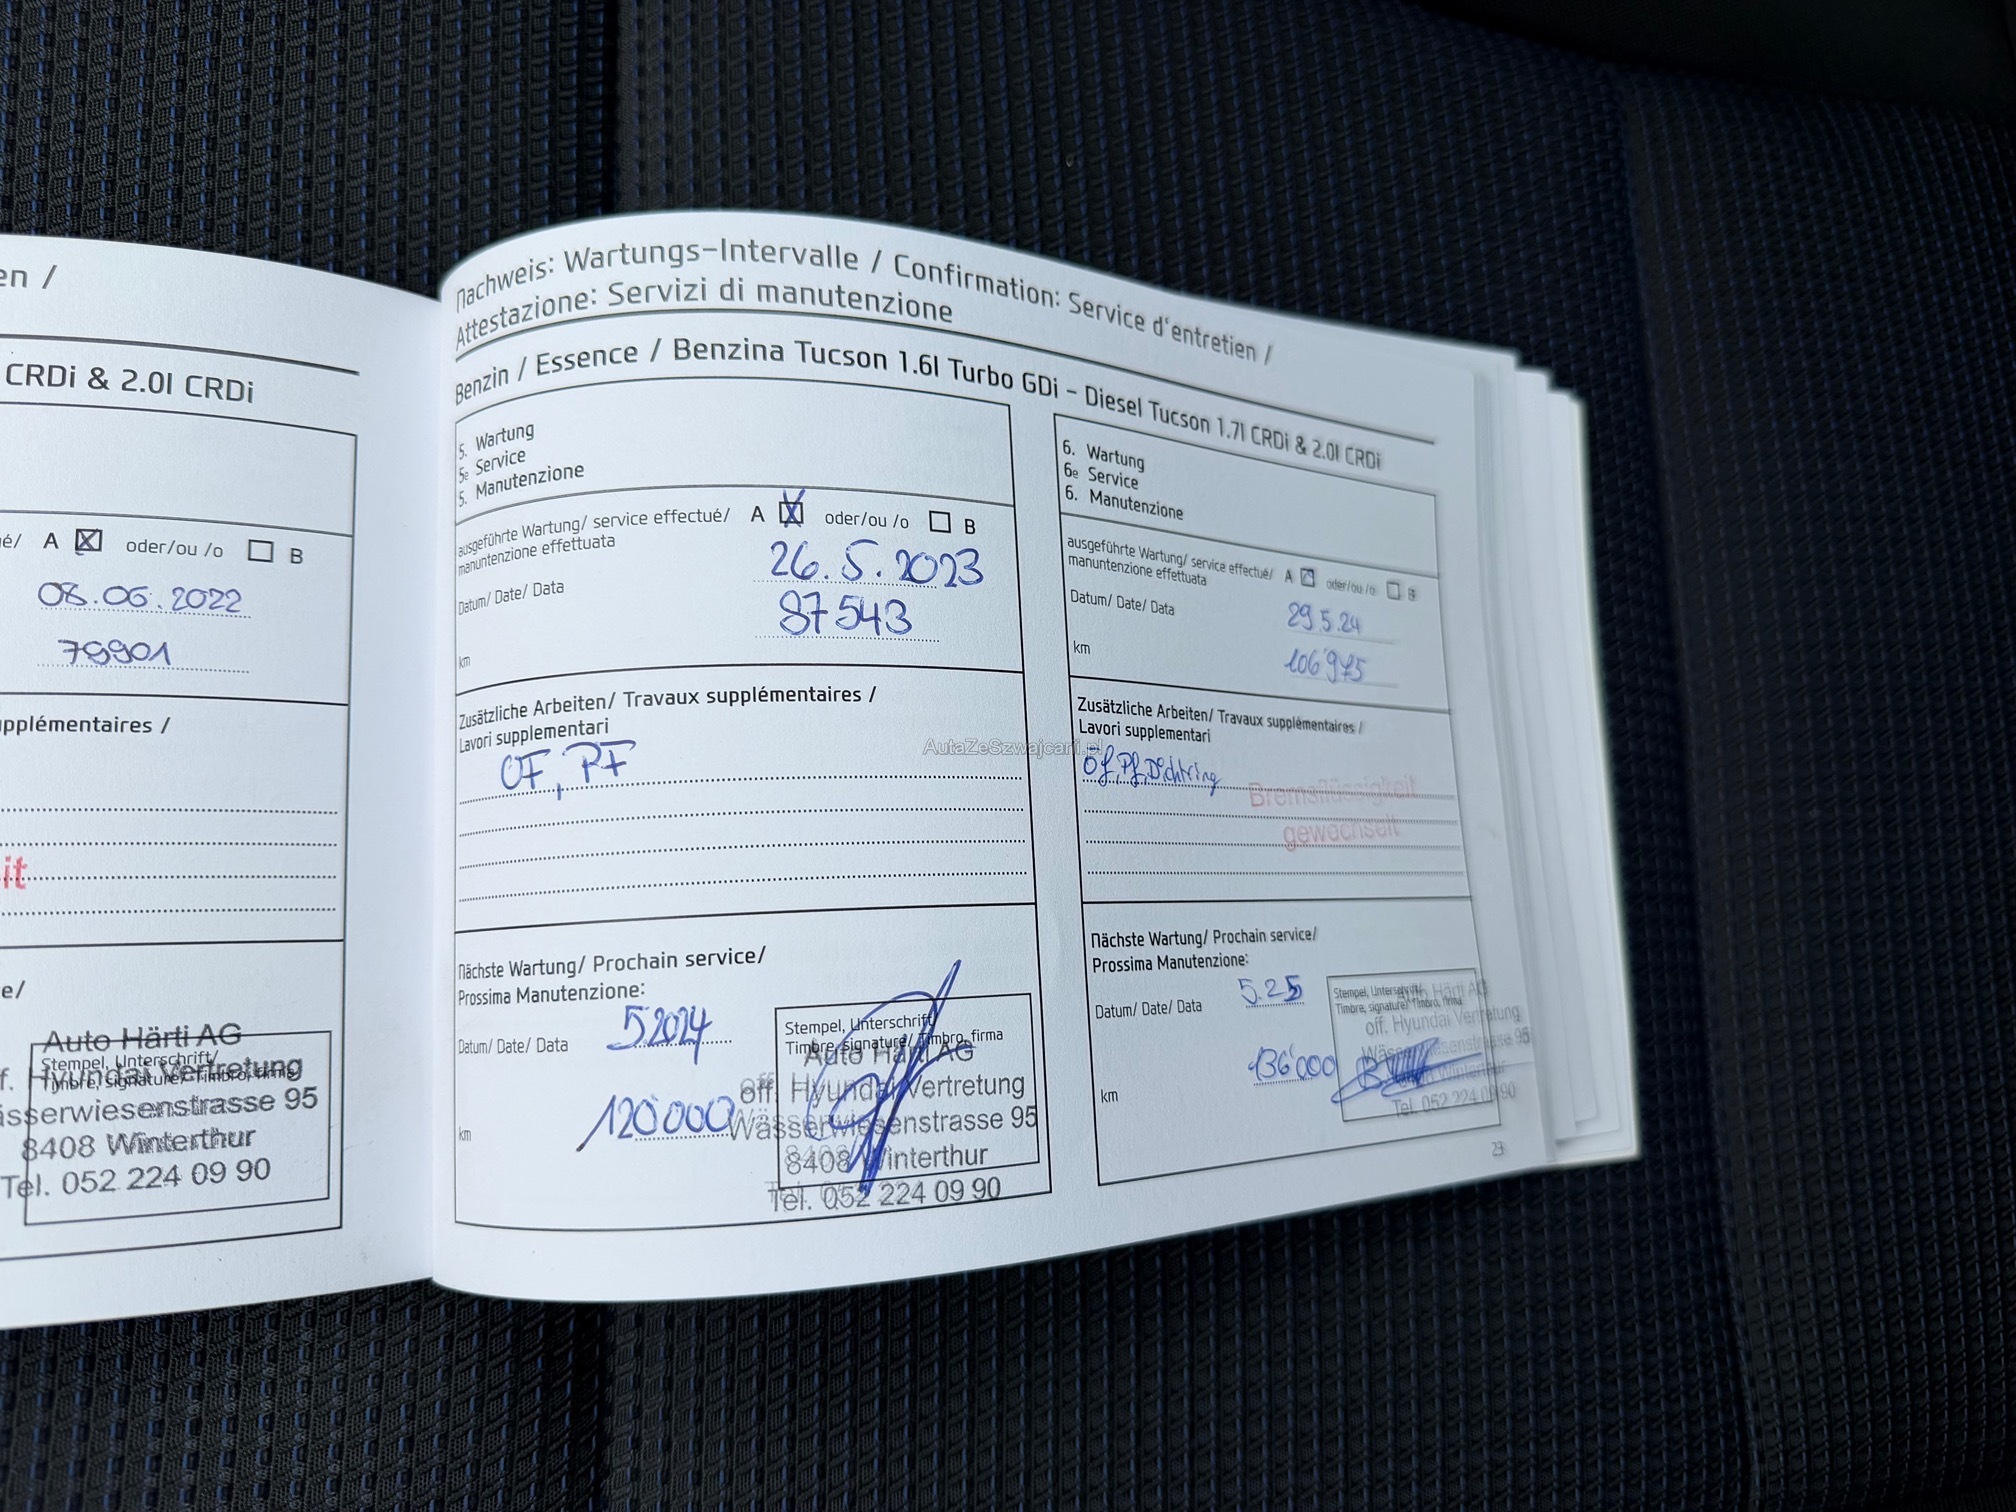 en /
CRDi & 2.0l CRDi
é/ A ☒ oder/ou /o ☐ B
08.06.2022
79901
upplémentaires /
it
e/
Auto Härti AG
Stempel, Unterschrift/
Timbre, signature/ Timbro, firma
f. Hyundai Vertretung
ässerwiesenstrasse 95
8408 Winterthur
Tel. 052 224 09 90
Nachweis: Wartungs-Intervalle / Confirmation: Service d'entretien /
Attestazione: Servizi di manutenzione
Benzin / Essence / Benzina Tucson 1.6l Turbo GDi - Diesel Tucson 1.7l CRDi & 2.0l CRDi
5. Wartung
5e Service
5. Manutenzione
ausgeführte Wartung/ service effectué/ A ☒ oder/ou /o ☐ B
manuntenzione effettuata
Datum/ Date/ Data 26.5.2023
km 87543
Zusätzliche Arbeiten/ Travaux supplémentaires /
Lavori supplementari
ÖF, PF
Nächste Wartung/ Prochain service/
Prossima Manutenzione:
Datum/ Date/ Data 5.2024
km 120'000
Stempel, Unterschrift/
Timbre, signature/ Timbro, firma
Auto Härti AG
off. Hyundai Vertretung
Wässerwiesenstrasse 95
8408 Winterthur
Tel. 052 224 09 90
6. Wartung
6e Service
6. Manutenzione
ausgeführte Wartung/ service effectué/ A ☒ oder/ou /o ☐ B
manuntenzione effettuata
Datum/ Date/ Data 29.5.24
km 106'975
Zusätzliche Arbeiten/ Travaux supplémentaires /
Lavori supplementari
Öf, Pf, Dichtring
Bremsflüssigkeit
gewechselt
Nächste Wartung/ Prochain service/
Prossima Manutenzione:
Datum/ Date/ Data 5.25
km 136'000
Stempel, Unterschrift/
Timbre, signature/ Timbro, firma
Auto Härti AG
off. Hyundai Vertretung
Wässerwiesenstrasse 95
Winterthur
Tel. 052 224 09 90
23
AutaZeSzwajcarii.pl